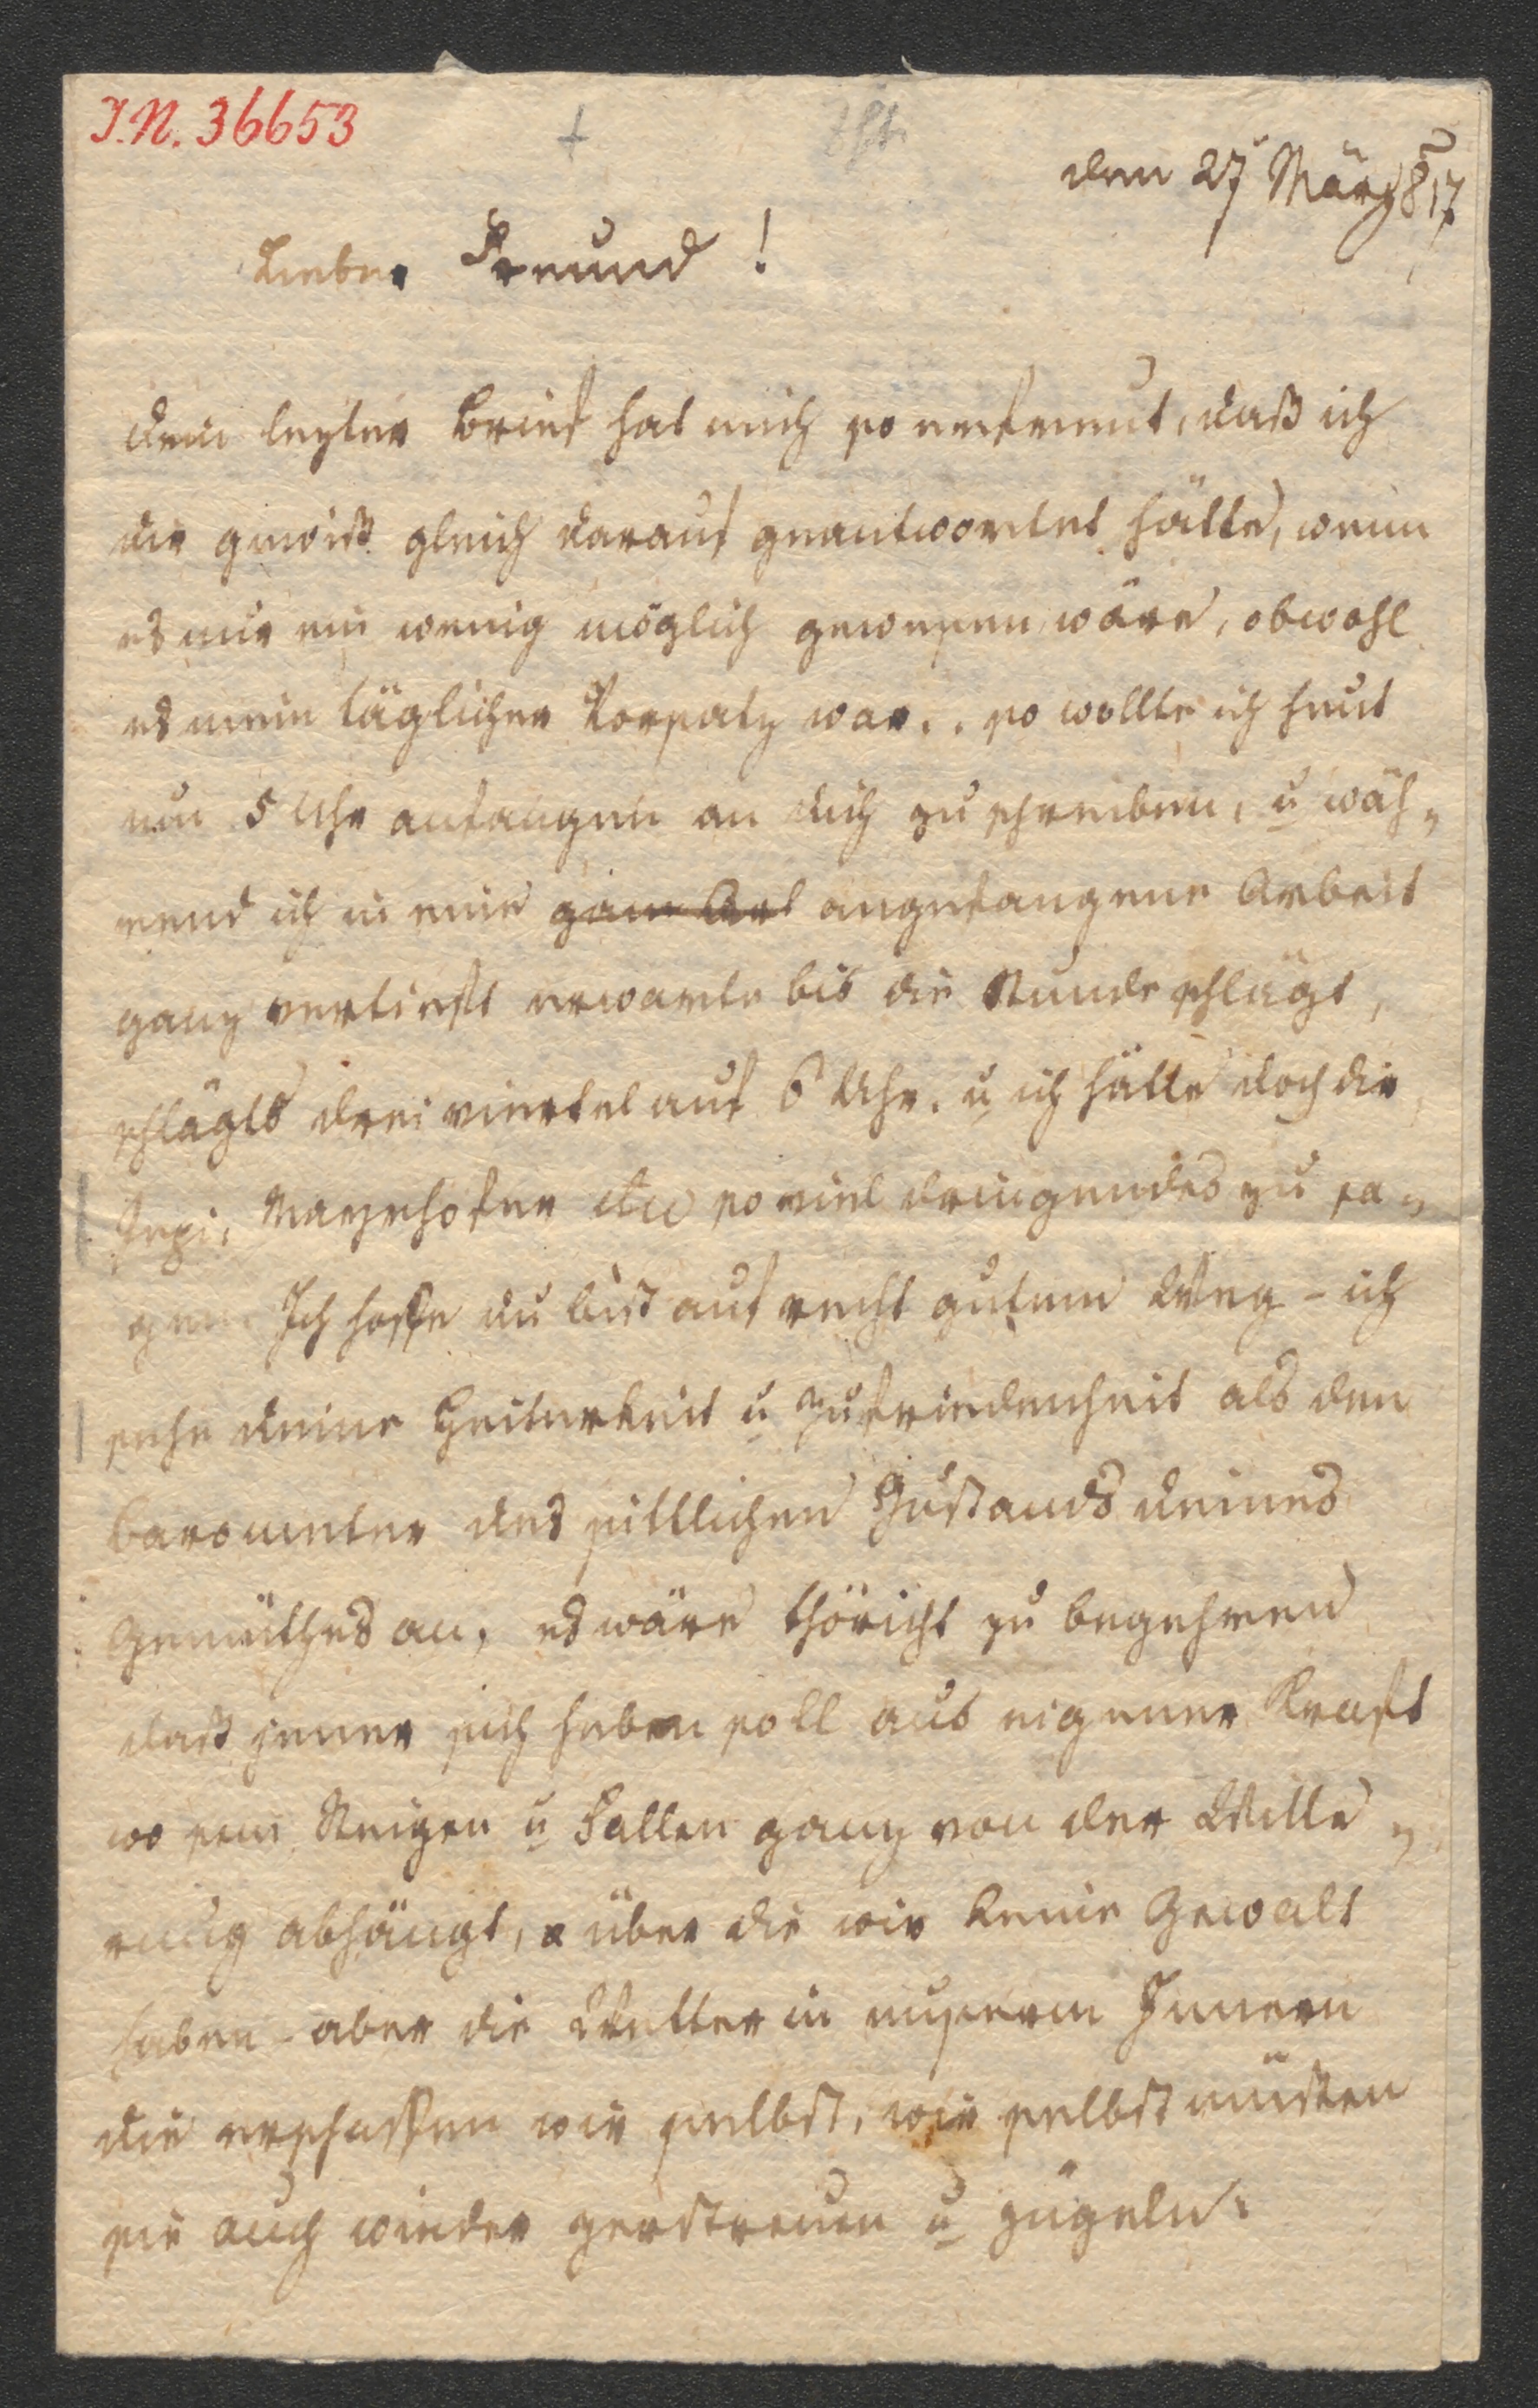 I.N. 36653
den 27 März 817
Lieber Freund!
dein lezter Brief hat mich so erfreut, daß ich
dir gewiß gleich darauf geantwortet hätte, wenn
es mir ein wenig möglich gewesen wäre, obwohl
es mein täglicher Vorsatz war.. so wollte ich heut
um 5 Uhr anfangen an dich zu schreiben, u wäh=
rend ich in eine angefangene Arbeit
ganz vertieft erwarte bis die Stunde schlägt,
schlägts drei viertel auf 6 Uhr. u ich hätte doch dir,
Pepi, Mayrhofer etc so viel dringendes zu sa=
gen. Ich hoffe du bist auf recht gutem Weg - ich
sehe deine Heiterkeit u Zufriedenheit als den
Barometer des sittlichen Zustands deines
Gemüthes an, es wäre thöricht zu begehren
daß jener sich heben soll aus eigener Kraft
wo sein Steigen u Fallen ganz von der Witte=
rung abhängt, über die wir keine Gewalt
haben - aber die Wetter in unserm Innern
die erschaffen wir selbst, wir selbst müßen
sie auch wieder zerstreuen u zügeln.